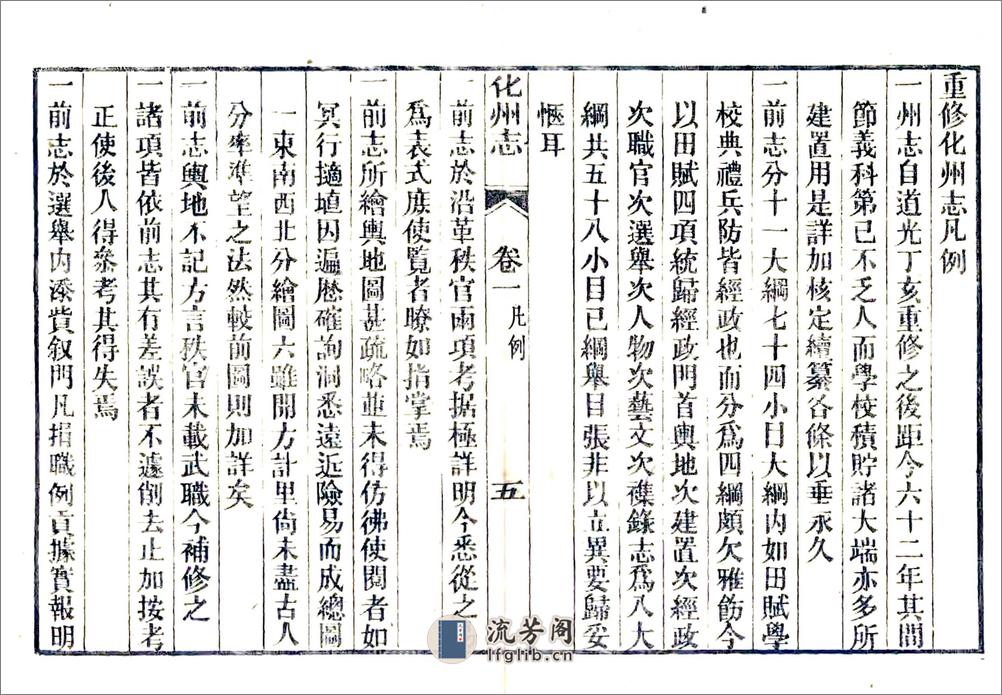 重修化州志凡例
一州志自道光丁亥重修之後距今六十二年其間
節義科第已不乏人而學校積貯諸大端亦多所
建置用是詳加核定續纂各條以垂永久
一前志分十一大綱七十四小目大綱內如田賦學
校典禮兵防皆經政也而分爲四綱頗欠雅飭今
以田賦四項統歸經政門首輿地次建置次經政
次職官次選舉次人物次藝文次襍錄志爲八大
綱共五十八小目已綱舉目張非以立異要歸妥
愜耳
化州志
卷一 凡例
五
一前志於沿革秩官兩項考据極詳明今悉從之
爲表式庶使覽者瞭如指掌焉
一前志所繪輿地圖甚疏略並未得仿彿使閱者如
冥行擿埴因遍歷確詢洞悉遠近險易而成總圖
一東南西北分繪圖六雖開方計里尙未盡古人
分率準望之法然較前圖則加詳矣
一前志輿地不記方言秩官未載武職今補修之
一諸項皆依前志其有差誤者不遽削去止加按考
正使後人得叅考其得失焉
一前志於選舉內添貲敘門凡捐職例貢據實報明
流芳阁
lfglib.cn